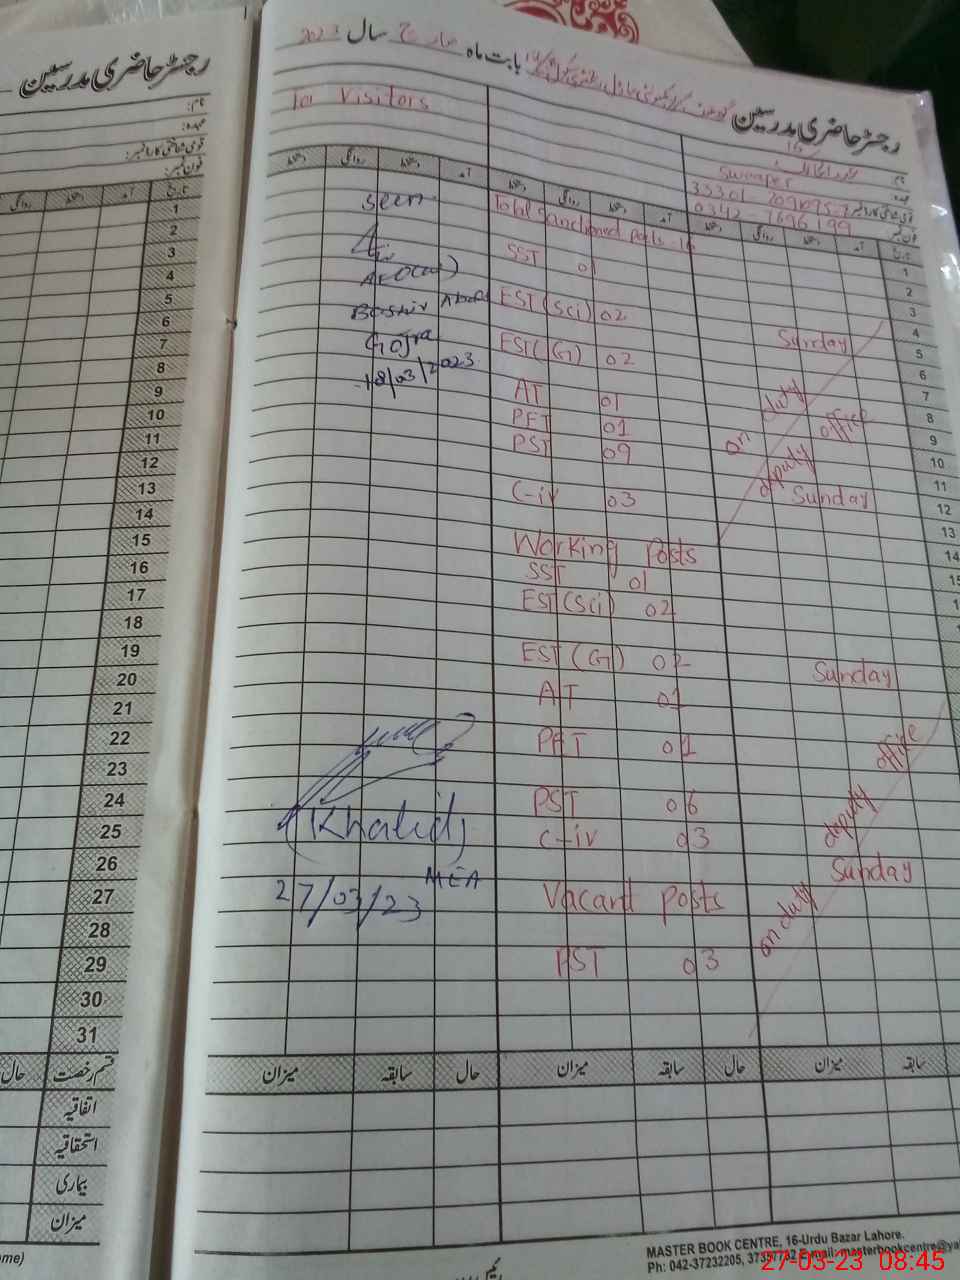 رجسٹر حاضری مدرسین
نام:
عہدہ:
قومی شناختی کارڈ نمبر:
فون نمبر:
روانگی دستخط آمد تاریخ
1
2
3
4
5
6
7
8
9
10
11
12
13
14
15
16
17
18
19
20
21
22
23
24
25
26
27
28
29
30
31
حال قسم رخصت
اتفاقیہ
استحقاقیہ
بیماری
میزان
رجسٹر حاضری مدرسین
بابت ماہ مارچ سال 2023
For Visitors
16
نام
Sweeper
عہدہ
قومی شناختی کارڈ نمبر
0342-7696199
فون نمبر
دستخط روانگی دستخط آمد
دستخط روانگی دستخط آمد
دستخط روانگی دستخط آمد تاریخ
seen
Bashir
Gojra
18/03/2023
(Khalid)
MEA
27/03/23
Total sanctioned posts - 19
SST 01
EST (Sci) 02
EST (G) 02
AT 01
PET 01
PST 09
C-iv 03
Working Posts
SST 01
EST (Sci) 02
EST (G) 02
AT 01
PET 01
PST 06
C-iv 03
Vacant posts
PST 03
Sunday
on duty
deputy office
Sunday
Sunday
on duty
deputy office
Sunday
1
2
3
4
5
6
7
8
9
10
11
12
14
15
میزان سابقہ حال
میزان سابقہ حال
میزان سابقہ
MASTER BOOK CENTRE, 16-Urdu Bazar Lahore.
Ph: 042-37232205, 37357732 E-mail: masterbookcentre@ya
27-03-23 08:45